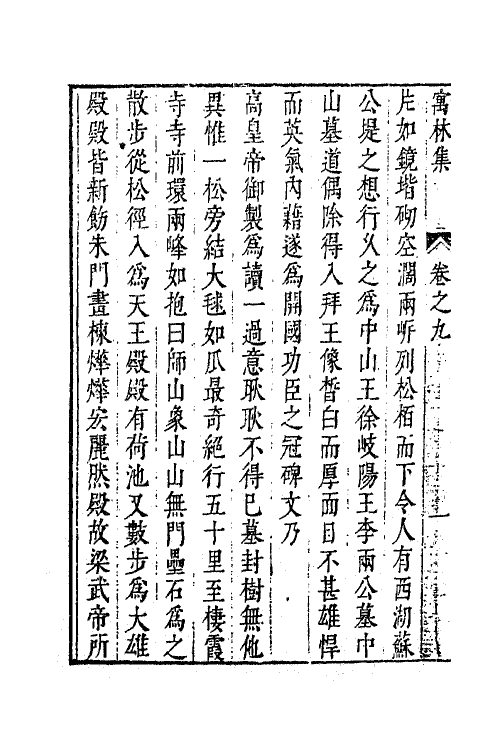 寓林集
卷之九
片如鏡堦砌空濶兩㟁列松栢而下令人有西湖蘇
公堤之想行乆之為中山王徐岐陽王李兩公墓中
山墓道偶除得入拜王像皙白而厚而目不甚雄悍
而英氣内藉遂為開國功臣之冠碑文乃
高皇帝御製為讀一過意耿耿不得巳墓封樹無他
異惟一松旁結大毬如瓜最奇絕行五十里至棲霞
寺寺前環兩峰如抱曰師山象山山無門壘石為之
散步從松徑入為天王殿殿有荷池又數步為大雄
殿殿皆新飭朱門畫棟燁燁宏麗然殿故梁武帝所